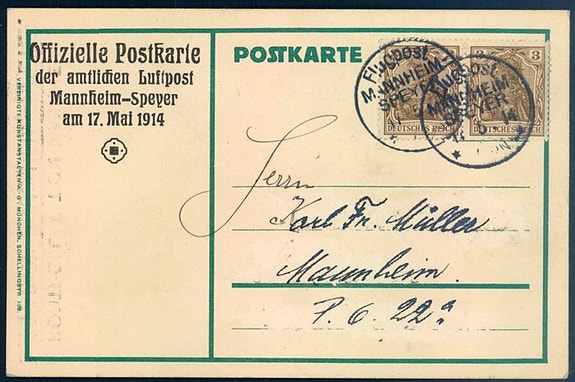 Offizielle Postkarte
der amtlichen Luftpost
Mannheim-Speyer
am 17. Mai 1914
POSTKARTE
Flugpost
MANNHEIM-
SPEYER
Flugpost
MANNHEIM-
SPEYER
3
DEUTSCHES REICH
DEUTSCHES REICH
Herrn
Karl Fr. Müller
Mannheim.
P. 6. 22a
VEREINIGTE KUNSTANSTALTEN A. G. MÜNCHEN, SCHELLINGSTR.